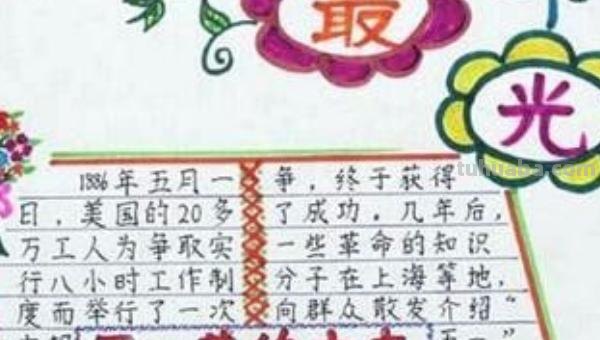 最
光
tuhuaba.com
1886年五月一
日，美国的20多
万工人为争取实
行八小时工作制
度而举行了一次
争，终于获得
了成功。几年后，
一些革命的知识
分子在上海等地，
向群众散发介绍“
五一”